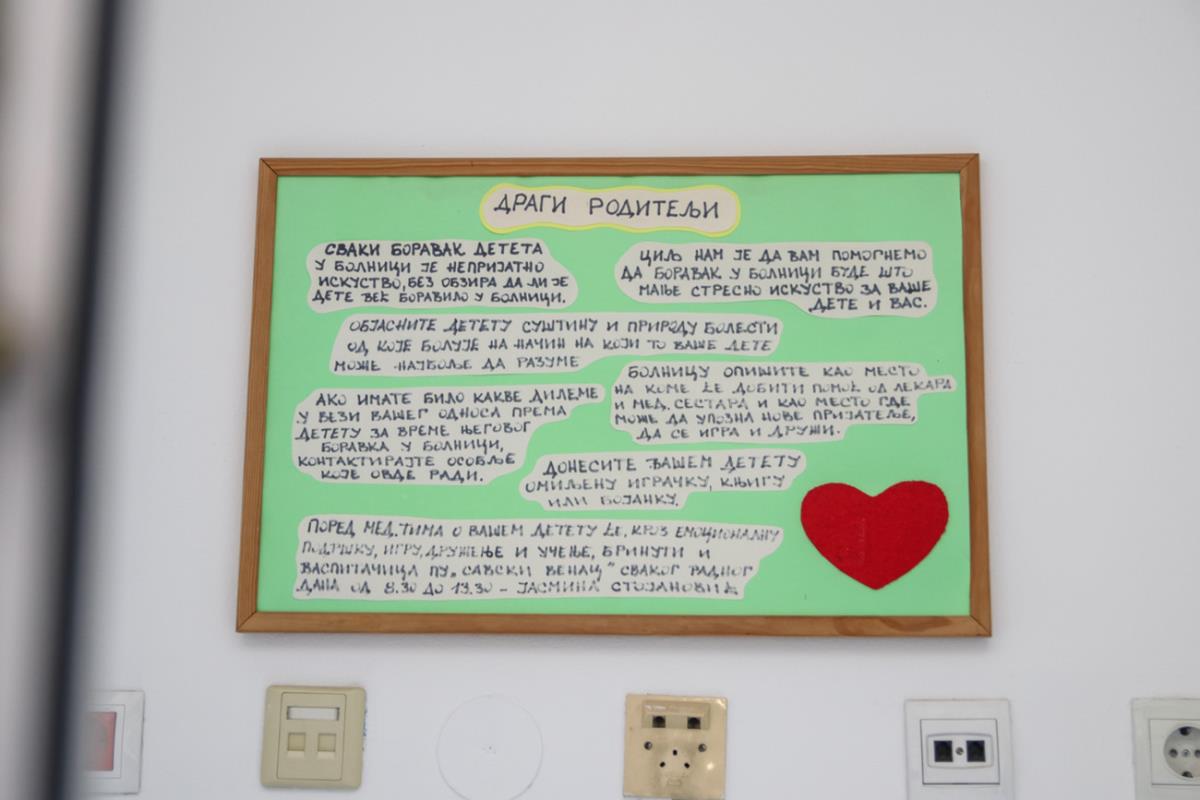 ДРАГИ РОДИТЕЉИ
СВАКИ БОРАВАК ДЕТЕТА
У БОЛНИЦИ ЈЕ НЕПРИЈАТНО
ИСКУСТВО, БЕЗ ОБЗИРА ДА ЛИ ЈЕ
ДЕТЕ ВЕЋ БОРАВИЛО У БОЛНИЦИ.
ЦИЉ НАМ ЈЕ ДА ВАМ ПОМОГНЕМО
ДА БОРАВАК У БОЛНИЦИ БУДЕ ШТО
МАЊЕ СТРЕСНО ИСКУСТВО ЗА ВАШЕ
ДЕТЕ И ВАС.
ОБЈАСНИТЕ ДЕТЕТУ СУШТИНУ И ПРИРОДУ БОЛЕСТИ
ОД КОЈЕ БОЛУЈЕ НА НАЧИН НА КОЈИ ТО ВАШЕ ДЕТЕ
МОЖЕ НАЈБОЉЕ ДА РАЗУМЕ
БОЛНИЦУ ОПИШИТЕ КАО МЕСТО
НА КОМЕ ЋЕ ДОБИТИ ПОМОЋ ОД ЛЕКАРА
И МЕД. СЕСТАРА И КАО МЕСТО ГДЕ
МОЖЕ ДА УПОЗНА НОВЕ ПРИЈАТЕЉЕ,
ДА СЕ ИГРА И ДРУЖИ.
АКО ИМАТЕ БИЛО КАКВЕ ДИЛЕМЕ
У ВЕЗИ ВАШЕГ ОДНОСА ПРЕМА
ДЕТЕТУ ЗА ВРЕМЕ ЊЕГОВОГ
БОРАВКА У БОЛНИЦИ,
КОНТАКТИРАЈТЕ ОСОБЉЕ
КОЈЕ ОВДЕ РАДИ.
ДОНЕСИТЕ ВАШЕМ ДЕТЕТУ
ОМИЉЕНУ ИГРАЧКУ, КЊИГУ
ИЛИ БОЈАНКУ.
ПОРЕД МЕД. ТИМА О ВАШЕМ ДЕТЕТУ ЋЕ, КРОЗ ЕМОЦИОНАЛНУ
ПОДРШКУ, ИГРУ, ДРУЖЕЊЕ И УЧЕЊЕ, БРИНУТИ И
ВАСПИТАЧИЦА ПУ „САВСКИ ВЕНАЦ" СВАКОГ РАДНОГ
ДАНА ОД 8.30 ДО 13.30 - ЈАСМИНА СТОЈАНОВИЋ